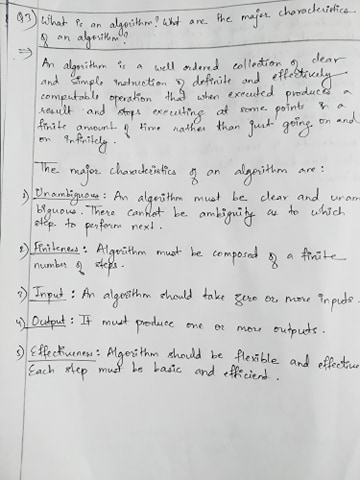 Q3) What is an algorithm? What are the major characteristics
of an algorithm?
⇒
An algorithm is a well ordered collection of clear
and simple instruction of definite and effectively
computable operation that when executed produces a
result and stops executing at some points in a
finite amount of time rather than just going on and
on infinitely.
The major characteristics of an algorithm are:
1) Unambiguous: An algorithm must be clear and unam
biguous. There cannot be ambiguity as to which
step to perform next.
2) Finiteness: Algorithm must be composed of a finite
number of steps.
3) Input: An algorithm should take zero or more inputs.
4) Output: It must produce one or more outputs.
5) Effectiveness: Algorithm should be flexible and effective
Each step must be basic and efficient.